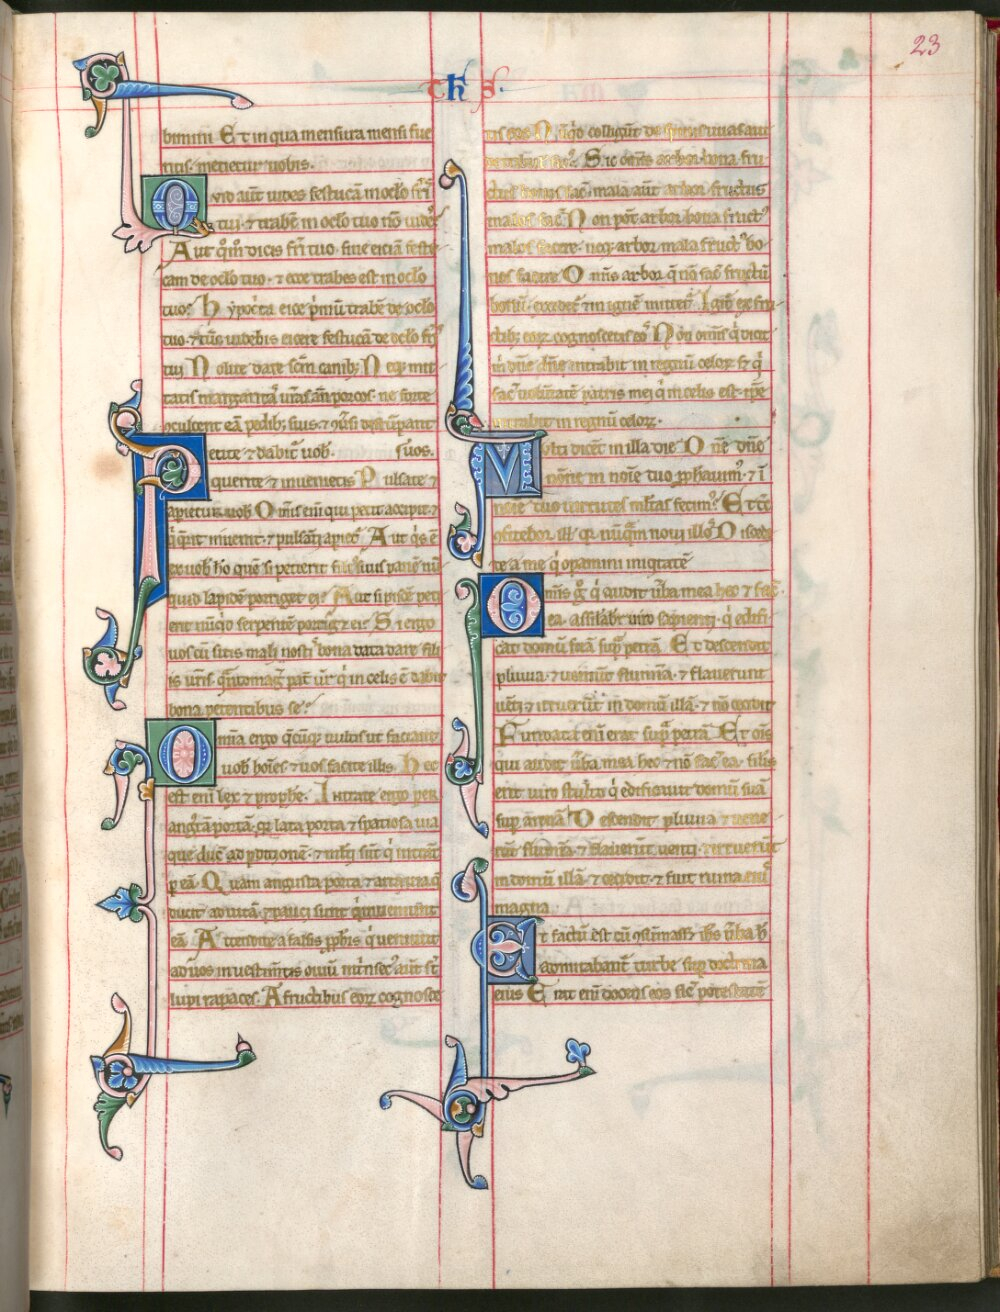 23
Th S.
bimini Et in qua mensura mensi fue
ritis. metietur vobis.
Quid aut uides festucā in oclo fr̄i
tui. ⁊ trabē in oclo tuo nō uides
Aut qm̄ dicis fr̄i tuo. sine eiciā festu
cam de oclo tuo. ⁊ ecce trabes est in oclo
tuo? Hypocrita eice p̄mū trabē de oclo
tuo. ⁊ tūc uidebis eicere festucā de oclo fr̄is
tui Nolite dare scm̄ canib; Neq; mit
tatis margaritā ur̄as an̄ porcos. ne forte
⁊uersi disrūpant
Petite ⁊ dabit uob. suos.
querite ⁊ inuenietis Pulsate ⁊
apietur uob Omīs eni qui petit accipit. ⁊
q̄ q̄rit inuenit. ⁊ pulsāti apiet Aut q̄s ē
ex uob ho que si petierit filius suus panē nū
quid lapidē porriget ei? Aut si piscē peti
erit nūcio serpentē porriget ei. Si ergo
uos cū sitis mali nostis bona data dare fili
is ur̄is. q̄ntomag; pat ur̄ q̄ in celis ē dabit
bona petentibus se?
Omnia ergo q̄cūq; uultis ut faciant
uob hoīes ⁊ uos facite illis. Hec
est eni lex ⁊ prophe. Intrate ergo per
angustā portā. qr lata porta ⁊ spatiosa uia
que ducit ad pditionē. ⁊ mlti sūt q̄ intrāt
p eā. Quam angusta porta ⁊ arta uia q̄
ducit ad uitā. ⁊ pauci sunt q̄ inueniunt
eā Attendite a falsis pphis q̄ ueniunt
ad uos in uestimtis ouiū int̄nsec aut st̄
lupi rapaces. A fructibus eor; cognosce
tis eos. Nūqd colligūt de spinis uuas aut
Sic omīs arbor bona fru
ctus bonos fac̄. mala aut arbor fructus
malos fac̄ Non pōt arbor bona fruct;
malos facere. neq; arbor mala fruct; bo
nos facere Omīs arbor q̄ nō fac̄ fructū
bonū. excidet ⁊ in ignē mittet. Igit ex fru
ctib; eor; cognoscetis eos Non omīs q̄ dicit
m̄ dn̄e dn̄e intrabit in regnū celor; s; q̄
fac̄ uoluntatē patris mei q̄ in celis est. ipe
intrabit in regnū celor;.
Multi dicēt m̄ in illa die Dn̄e dn̄e
nōne in noīe tuo pphauim; ⁊ ī
noīe tuo uirtutes mltas fecim;? Et tūc
ofitebor ill qr nūq̄m noui illos Discedi
te a me q̄ opamini iniqtatē
Omīs g° q̄ audit ūba mea hec ⁊ fac̄
ea. assilabr uiro sapienti. q̄ edifi
cat domū suā sup petrā. Et descendit
pluuia. ⁊ uenīut flumina. ⁊ flauerunt
uēti ⁊ irruerūt in domū illā. ⁊ nō cecidit
Fundata eni erat supra petrā. Et oīs
qui audit ūba mea hec ⁊ nō fac̄ ea. silis
erit uiro stulto q̄ edificauit domū suā
sup arenā Descendit pluuia ⁊ uene
rūt flumina ⁊ flauerūt uenti. ⁊ irruerūt
in domū illā. ⁊ cecidit. ⁊ fuit ruina ei;
magna
Et factū est cū ⁊sūmass; ihs ūba h̄
admirabant turbe sup doctrina
eius Erat eni docens eos sic̄ potestatē